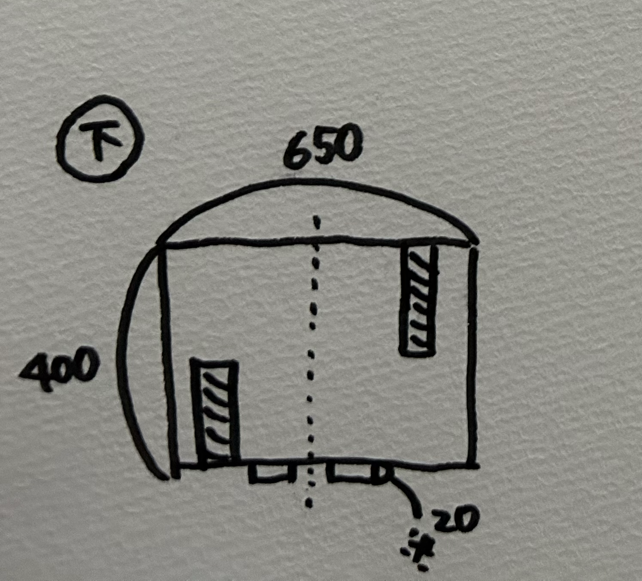 下
650
400
20
※